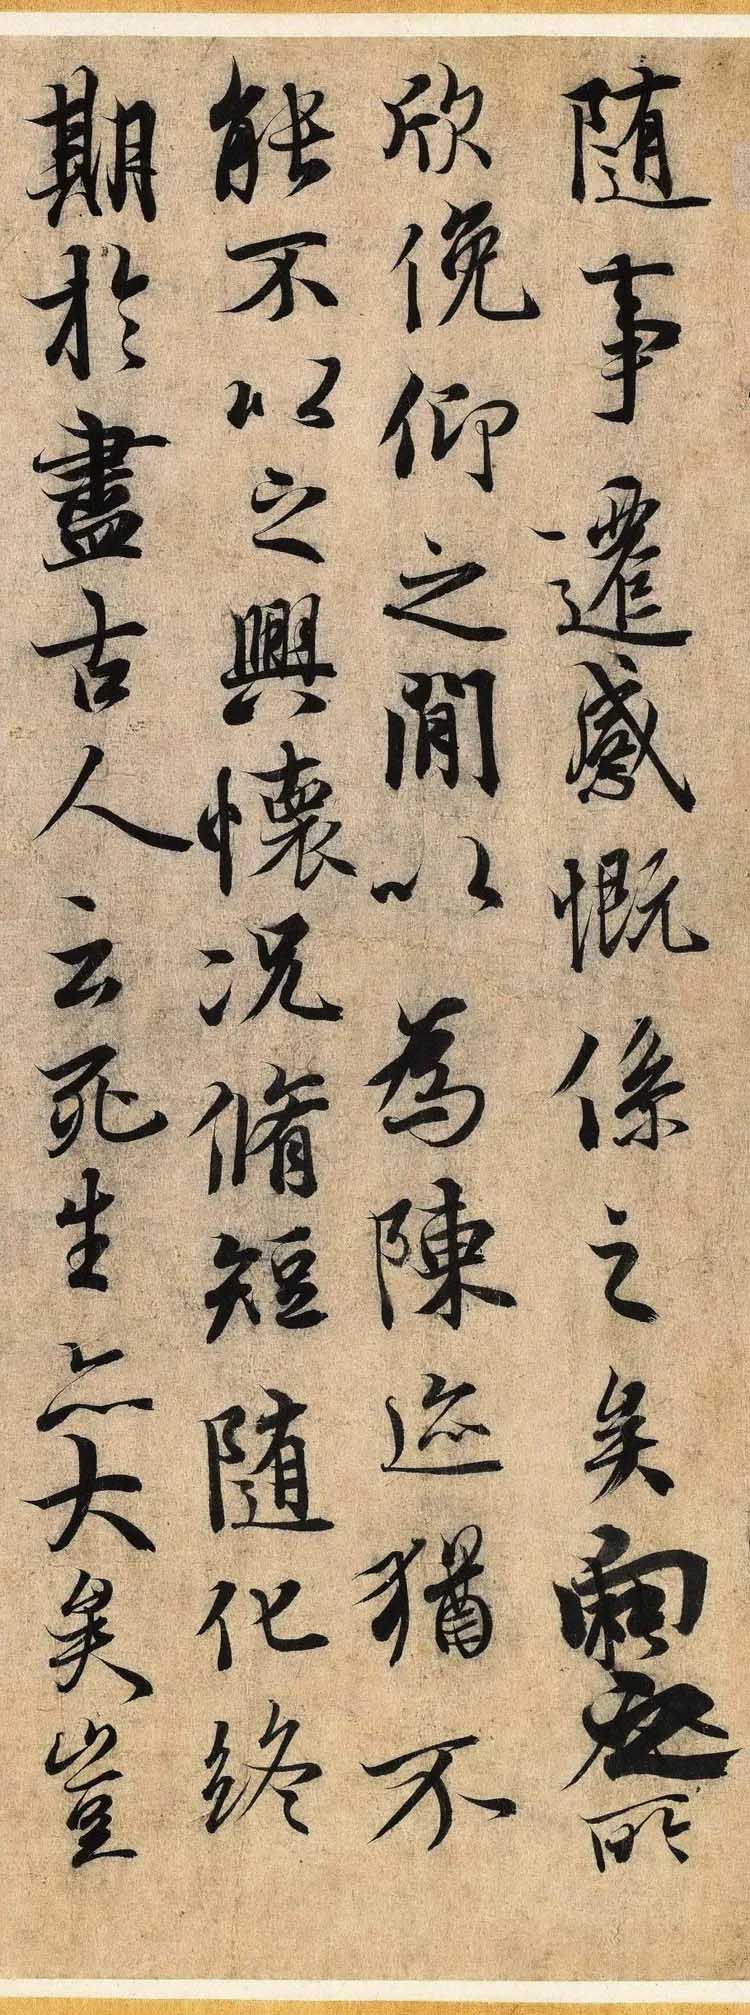 随事遷感慨係之矣向之所
欣俛仰之閒以為陳迹猶不
能不以之興懷況脩短随化終
期於盡古人云死生亦大矣豈